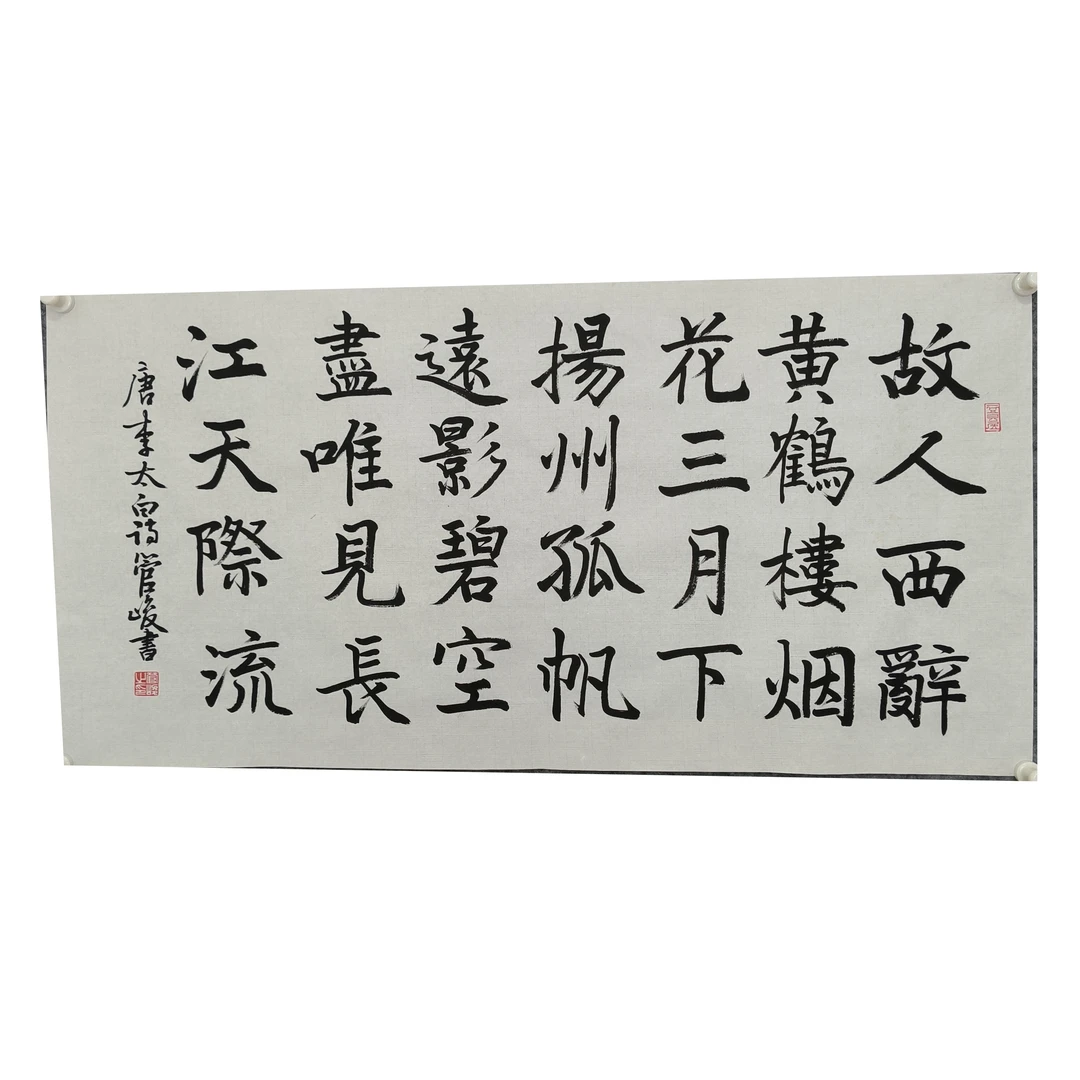 故人西辭
黄鶴樓烟
花三月下
揚州孤帆
遠影碧空
盡唯見長
江天際流
唐李太白詩管峻書